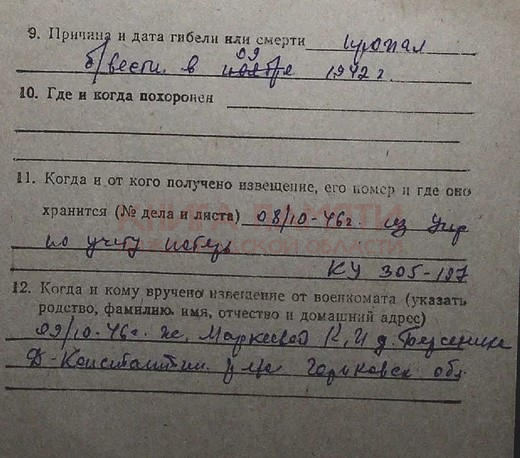 9. Причина и дата гибели или смерти пропал
б/вести в 09 ноября 1942 г.
10. Где и когда похоронен
11. Когда и от кого получено извещение, его номер и где оно
хранится (№ дела и листа) 08/10-46г. из Упр
по учету потерь
КУ 305-197
КНИГА ПАМЯТИ
НИЖЕГОРОДСКОЙ ОБЛАСТИ
12. Когда и кому вручено извещение от военкомата (указать
родство, фамилию, имя, отчество и домашний адрес)
09/10-46г. же, Маркеевой К, И д.
Д-Константин. р-на Горьковск обл